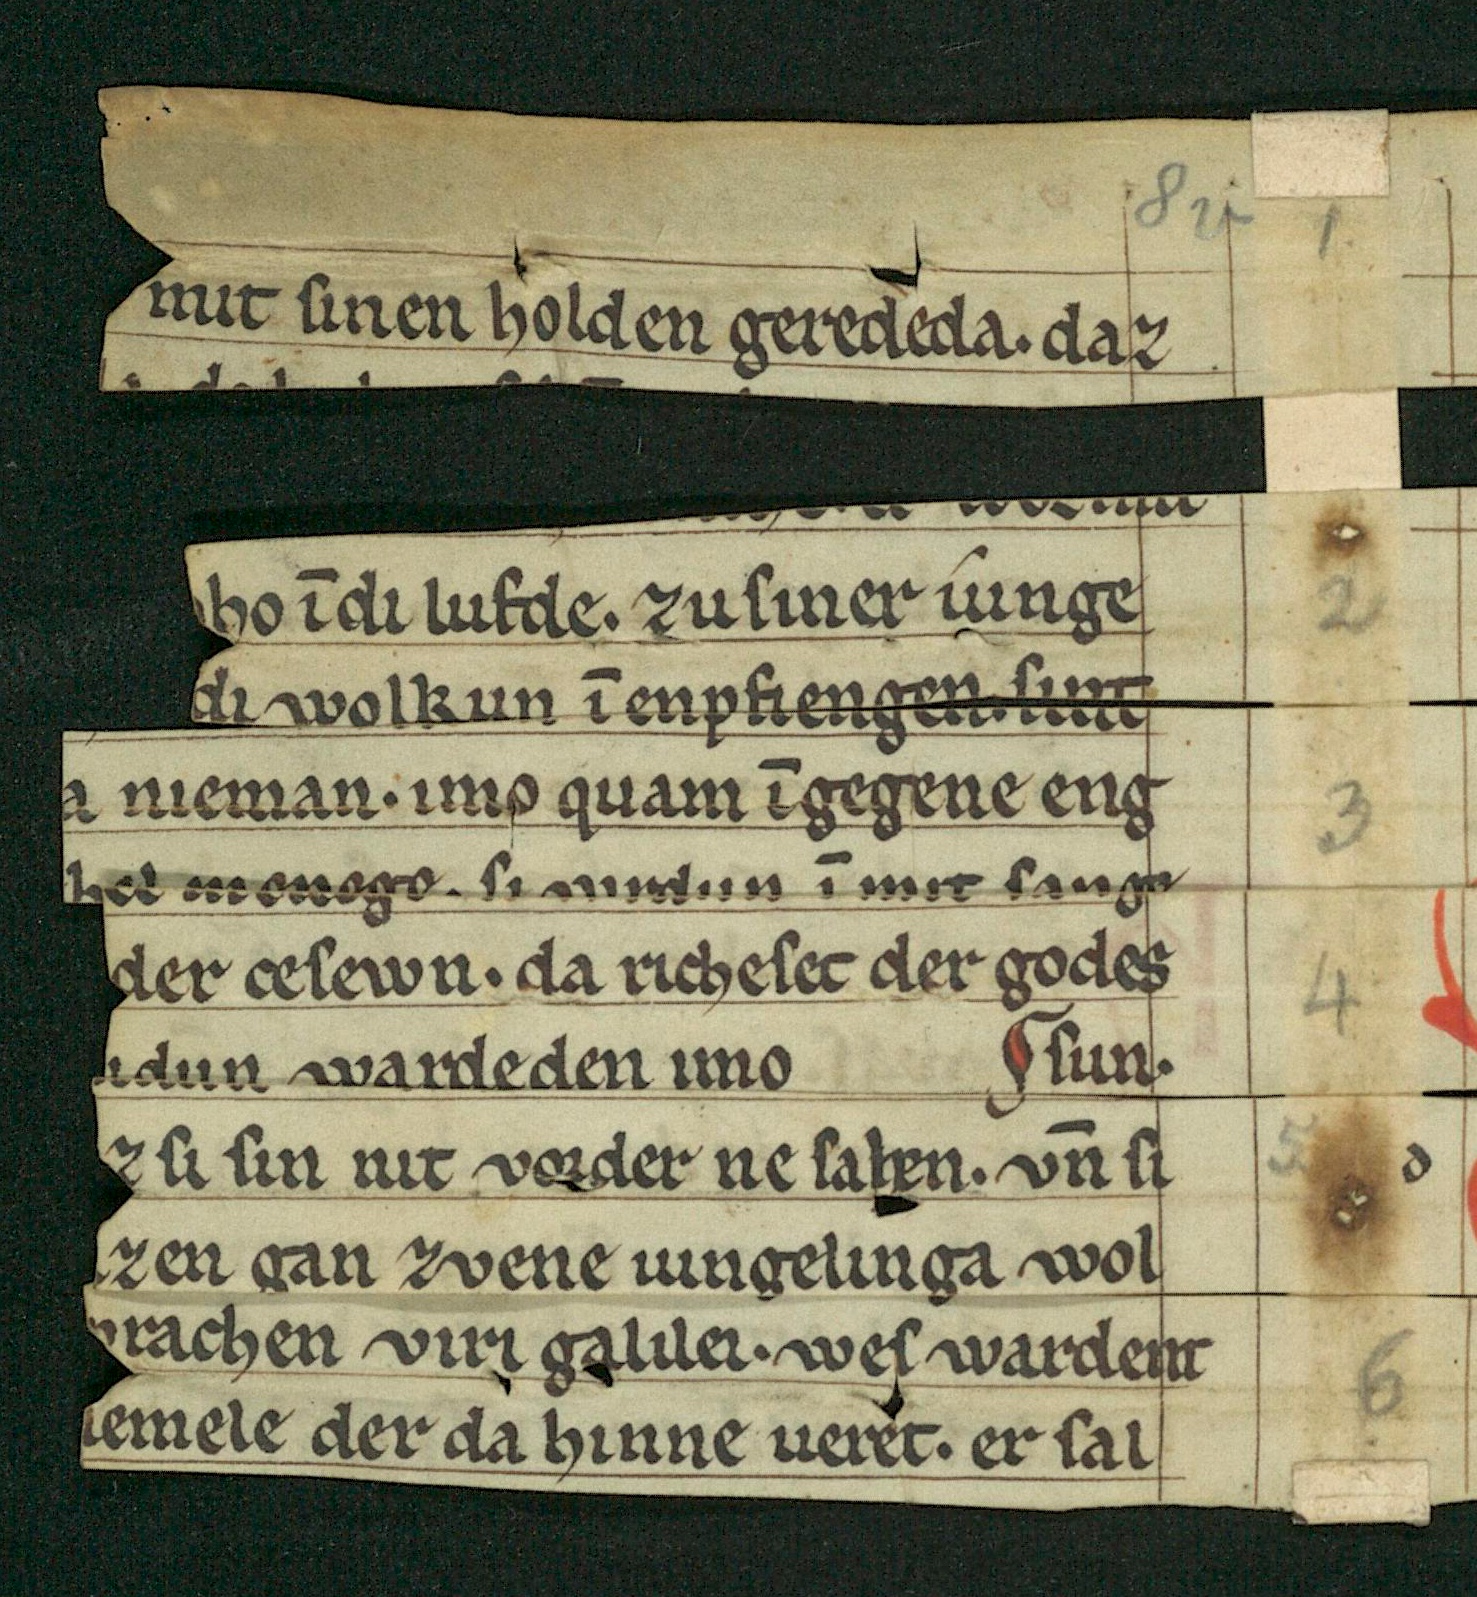 8v 1
mit sinen holden gerededa. daz
ho īdi lufde. zu siner iunge 2
di wolkun ī enpfiengen. sint
a nieman. imo quam īgegene eng 3
hel menege. si uurdun ī mit sange
der cesewn. da richeset der godes 4
dun wardeden imo sun.
z si sin nit vorder ne sahen. vn̄ si 5
zen gan zvene iungelinga wol
rachen viri galilei. wes wardent 6
iemele der da hinne ueret. er sal